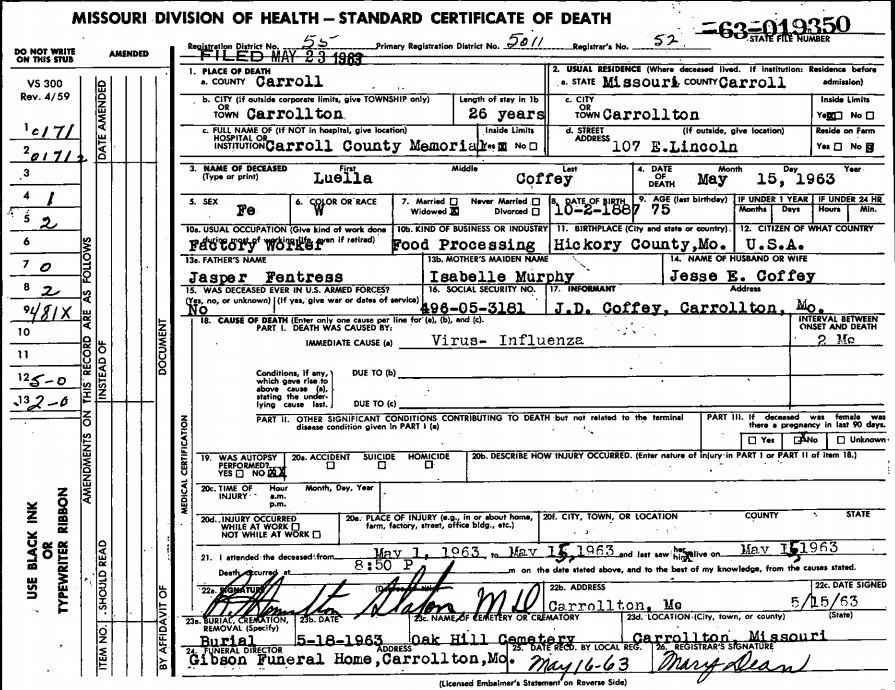 MISSOURI DIVISION OF HEALTH — STANDARD CERTIFICATE OF DEATH
63-019350
STATE FILE NUMBER
DO NOT WRITE ON THIS STUB
AMENDED
Registration District No. 55 Primary Registration District No. 5011 Registrar's No. 52
FILED MAY 23 1963
VS 300
Rev. 4/59
1. PLACE OF DEATH
a. COUNTY Carroll
2. USUAL RESIDENCE (Where deceased lived. If institution: Residence before admission)
a. STATE Missouri COUNTY Carroll
b. CITY (If outside corporate limits, give TOWNSHIP only) OR TOWN Carrollton
Length of stay in 1b
26 years
c. CITY OR TOWN Carrollton
Inside Limits
Yes ☒ No ☐
c. FULL NAME OF (If NOT in hospital, give location) HOSPITAL OR INSTITUTION Carroll County Memorial
Inside Limits
Yes ☒ No ☐
d. STREET ADDRESS (If outside, give location)
107 E.Lincoln
Reside on Farm
Yes ☐ No ☒
3. NAME OF DECEASED (Type or print)
First Middle Last
Luella Coffey
4. DATE OF DEATH Month Day Year
May 15, 1963
5. SEX
Fe
6. COLOR OR RACE
W
7. Married ☐ Never Married ☐
Widowed ☒ Divorced ☐
8. DATE OF BIRTH
10-2-1887
9. AGE (last birthday)
75
IF UNDER 1 YEAR
Months Days
IF UNDER 24 HR
Hours Min.
10a. USUAL OCCUPATION (Give kind of work done during most of working life, even if retired)
Factory Worker
10b. KIND OF BUSINESS OR INDUSTRY
Food Processing
11. BIRTHPLACE (City and state or country)
Hickory County,Mo.
12. CITIZEN OF WHAT COUNTRY
U.S.A.
13a. FATHER'S NAME
Jasper Fentress
13b. MOTHER'S MAIDEN NAME
Isabelle Murphy
14. NAME OF HUSBAND OR WIFE
Jesse E. Coffey
15. WAS DECEASED EVER IN U.S. ARMED FORCES?
(Yes, no, or unknown) (If yes, give war or dates of service)
No
16. SOCIAL SECURITY NO.
496-05-3181
17. INFORMANT Address
J.D. Coffey, Carrollton, Mo.
18. CAUSE OF DEATH (Enter only one cause per line for (a), (b), and (c).
PART I. DEATH WAS CAUSED BY:
INTERVAL BETWEEN ONSET AND DEATH
IMMEDIATE CAUSE (a) Virus- Influenza
2 Mo
Conditions, if any, which gave rise to above cause (a), stating the underlying cause last.
DUE TO (b)
DUE TO (c)
PART II. OTHER SIGNIFICANT CONDITIONS CONTRIBUTING TO DEATH but not related to the terminal disease condition given in PART I (a)
PART III. If deceased was female was there a pregnancy in last 90 days.
☐ Yes ☒ No ☐ Unknown
19. WAS AUTOPSY PERFORMED?
YES ☐ NO ☒
20a. ACCIDENT SUICIDE HOMICIDE
☐ ☐ ☐
20b. DESCRIBE HOW INJURY OCCURRED. (Enter nature of injury in PART I or PART II of item 18.)
20c. TIME OF INJURY Hour a.m. p.m. Month, Day, Year
20d. INJURY OCCURRED
WHILE AT WORK ☐
NOT WHILE AT WORK ☐
20e. PLACE OF INJURY (e.g., in or about home, farm, factory, street, office bldg., etc.)
20f. CITY, TOWN, OR LOCATION COUNTY STATE
21. I attended the deceased from May 1, 1963, to May 15, 1963 and last saw her/him alive on May 15 1963
Death occurred at 8:50 P m on the date stated above, and to the best of my knowledge, from the causes stated.
22a. SIGNATURE
Hamilton Slaton MD
22b. ADDRESS
Carrollton, Mo
22c. DATE SIGNED
5/15/63
23a. BURIAL, CREMATION, REMOVAL (Specify)
Burial
23b. DATE
5-18-1963
23c. NAME OF CEMETERY OR CREMATORY
Oak Hill Cemetery
23d. LOCATION (City, town, or county) (State)
Carrollton Missouri
24. FUNERAL DIRECTOR ADDRESS
Gibson Funeral Home,Carrollton,Mo.
25. DATE RECD. BY LOCAL REG.
May 16-63
26. REGISTRAR'S SIGNATURE
Mary Dean
(Licensed Embalmer's Statement on Reverse Side)
1 0171
2 0171
3
4 1
5 2
6
7 0
8 2
9 481X
10
11
12 5-0
13 2-0
USE BLACK INK
OR
TYPEWRITER RIBBON
AMENDMENTS ON THIS RECORD ARE AS FOLLOWS
ITEM NO. SHOULD READ INSTEAD OF DATE AMENDED
BY AFFIDAVIT OF DOCUMENT
MEDICAL CERTIFICATION